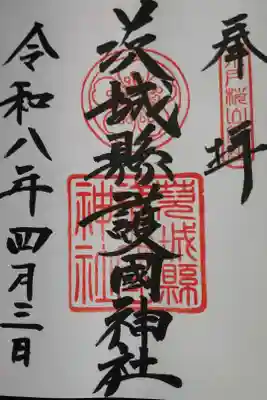 奉拝
茨城縣護國神社
茨城縣護國神社
令和八年四月三日